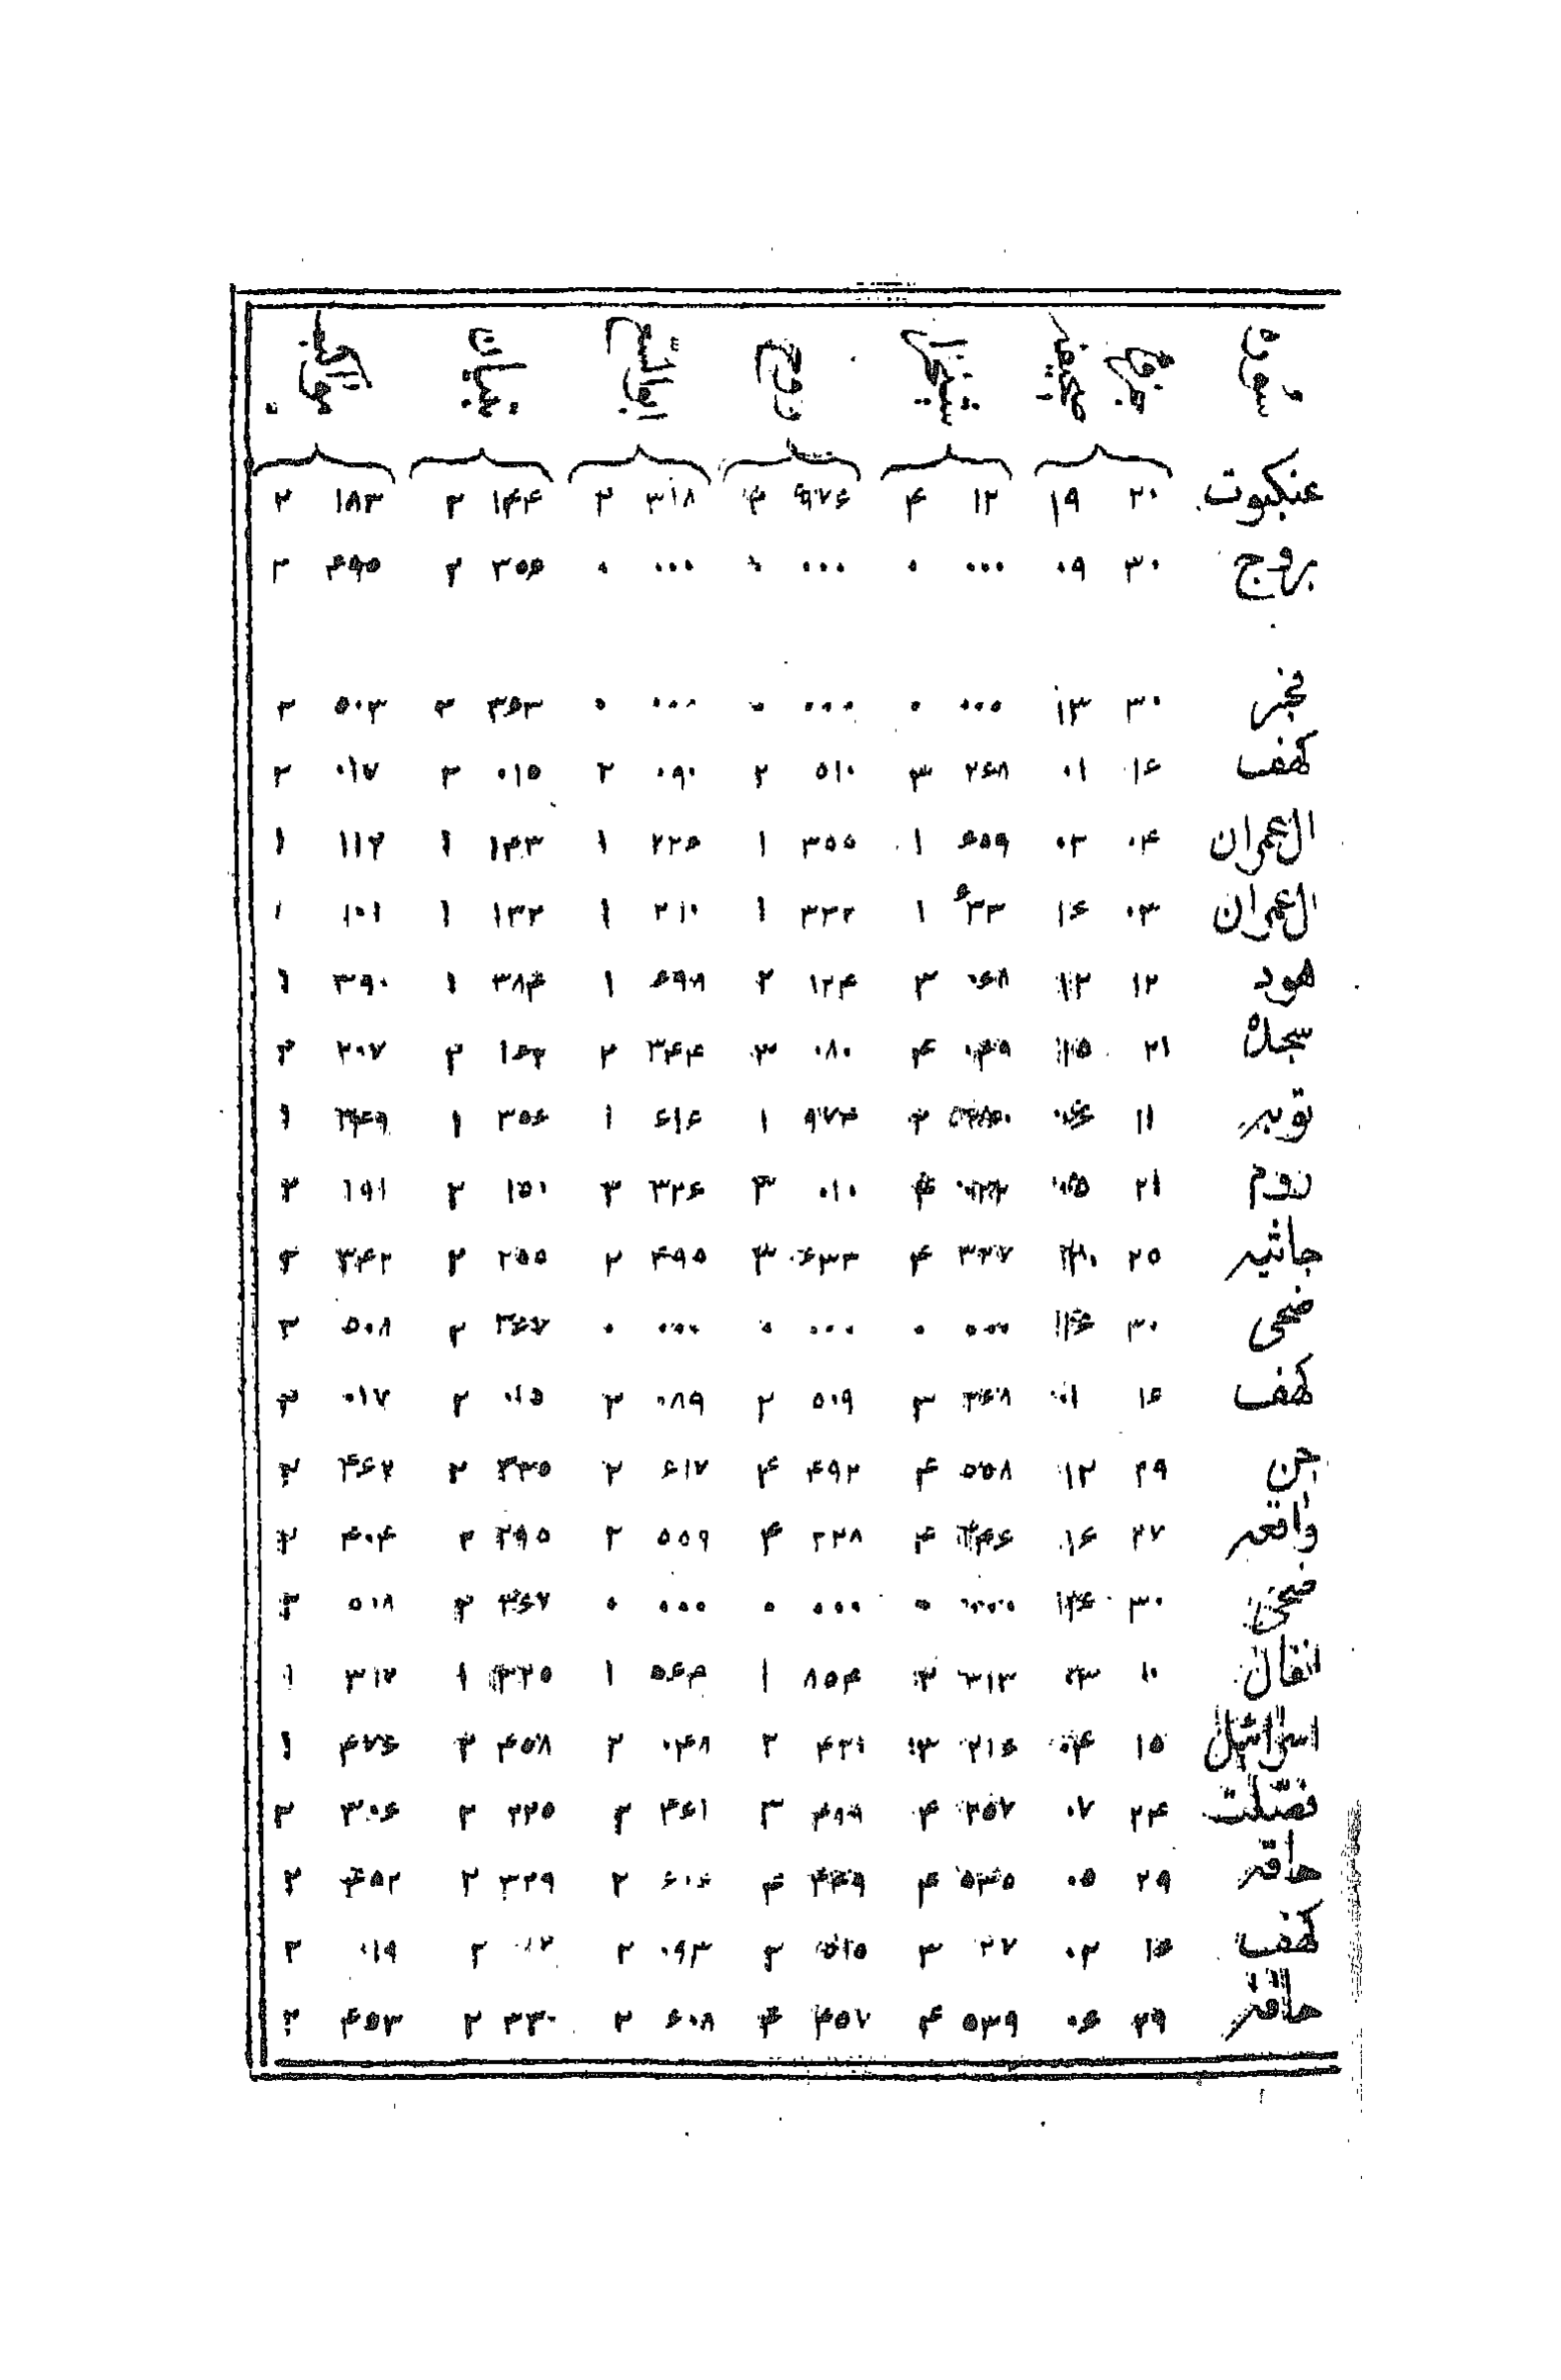 سوره جزء صحیفه روح
عنکبوت ۲۰ ۱۹ ۱۲ ۴ ۳۱۸ ۲ ۱۴۴ ۲ ۱۸۳ ۲
بروج ۳۰ ۰۹ ۰۰۰ ۰ ۰۰۰ ۰ ۰۰۰ ۰ ۳۵۶ ۲ ۴۹۵ ۲
فجر ۳۰ ۱۳ ۰۰۰ ۰ ۰۰۰ ۰ ۰۰۰ ۰ ۳۵۳ ۲ ۵۰۳ ۲
کهف ۱۶ ۰۱ ۲۶۸ ۳ ۵۱۰ ۲ ۰۹۰ ۲ ۰۱۵ ۲ ۰۱۷ ۲
ال عمران ۰۴ ۰۲ ۶۵۹ ۱ ۳۵۵ ۱ ۲۲۶ ۱ ۱۴۳ ۱ ۱۱۲ ۱
ال عمران ۰۳ ۱۶ ۶۳۳ ۱ ۳۳۲ ۱ ۲۱۰ ۱ ۱۳۲ ۱ ۱۰۱ ۱
هود ۱۲ ۱۲ ۰۶۸ ۳ ۱۲۴ ۲ ۶۹۸ ۱ ۳۸۴ ۱ ۳۹۰ ۱
سجده ۲۱ ۱۵ ۴ ۰۸۰ ۳ ۳۴۴ ۲ ۱۶۲ ۲ ۲۰۷ ۲
توبه ۱۱ ۲ ۹۷۴ ۱ ۶۱۶ ۱ ۳۵۶ ۱ ۳۴۹ ۱
روم ۲۱ ۰۵ ۴ ۰۱۰ ۳ ۳۲۶ ۲ ۱۵۰ ۲ ۱۹۱ ۲
جاثیه ۲۵ ۳۲۷ ۴ ۶۳۳ ۳ ۴۹۵ ۲ ۲۵۵ ۲ ۳۴۲ ۲
ضحی ۳۰ ۰۰۰ ۰ ۰۰۰ ۰ ۰۰۰ ۰ ۳۶۷ ۲ ۵۰۸ ۲
کهف ۱۶ ۰۱ ۲۶۸ ۳ ۵۰۹ ۲ ۰۸۹ ۲ ۰۱۵ ۲ ۰۱۷ ۲
جن ۲۹ ۱۲ ۵۵۸ ۴ ۴۹۲ ۴ ۶۱۷ ۲ ۳۳۵ ۲ ۴۶۲ ۲
واقعه ۲۷ ۱۶ ۴ ۲۳۸ ۴ ۵۵۹ ۲ ۲۹۵ ۲ ۴۰۴ ۲
ضحی ۳۰ ۰۰۰ ۰ ۰۰۰ ۰ ۰۰۰ ۰ ۳۶۷ ۲ ۵۰۸ ۲
انفال ۱۰ ۰۳ ۳۱۳ ۲ ۸۵۴ ۱ ۵۶۴ ۱ ۳۲۵ ۱ ۳۱۷ ۱
اسرائیل ۱۵ ۰۴ ۲۱۶ ۳ ۴۳۱ ۲ ۰۴۸ ۲ ۴۵۸ ۲ ۴۷۶ ۱
فصّلت ۲۴ ۰۷ ۲۵۷ ۴ ۴۹۹ ۳ ۴۶۱ ۲ ۲۲۵ ۲ ۳۰۶ ۲
حاقه ۲۹ ۰۵ ۵۳۵ ۴ ۴۴۹ ۴ ۶۰۶ ۲ ۳۲۹ ۲ ۴۵۲ ۲
کهف ۱۶ ۰۲ ۲۷ ۳ ۵۱۵ ۲ ۰۹۳ ۲ ۰۱۷ ۲ ۰۱۹ ۲
حاقه ۲۹ ۰۶ ۵۳۹ ۴ ۴۵۷ ۴ ۶۰۸ ۲ ۳۳۰ ۲ ۴۵۳ ۲